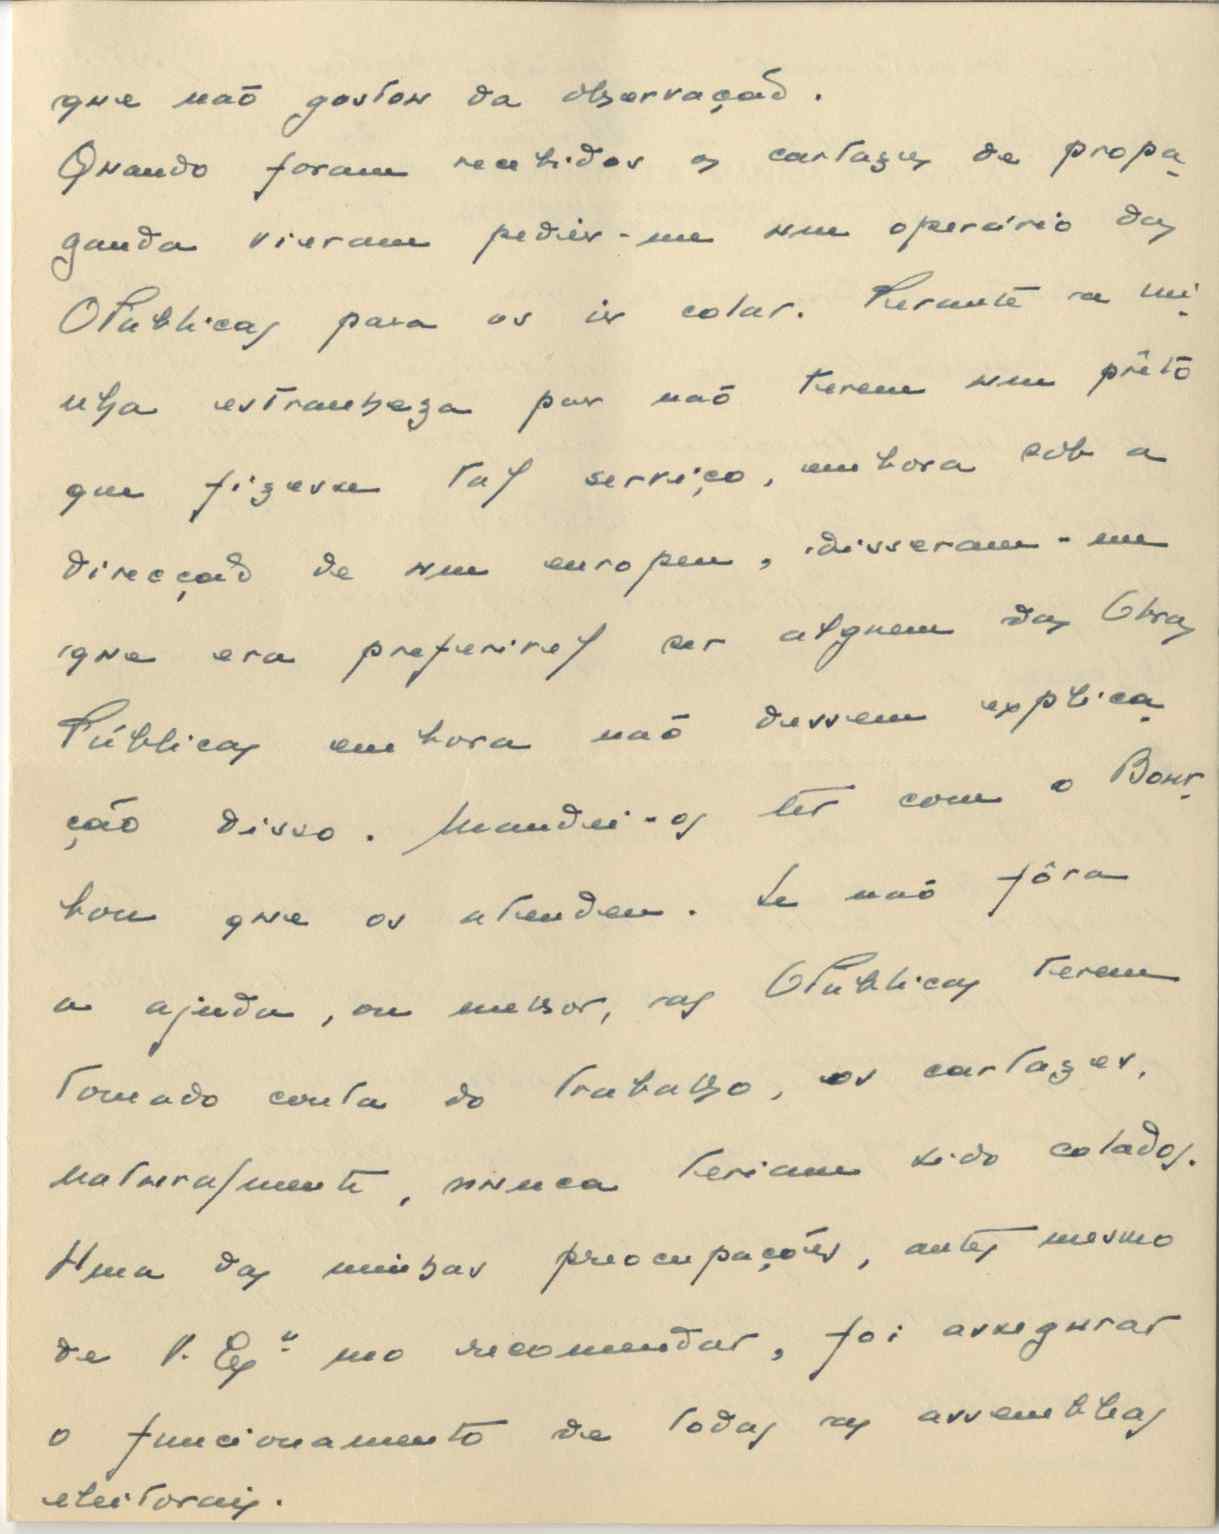 que não gostou da observação.
Quando foram recebidos os cartazes de propa-
ganda vieram pedir-me um operário das
OPúblicas para os ir colar. Perante a mi-
nha estranheza por não terem um prêto
que fizesse tal serviço, embora sob a
direcção de um europeu, disseram-me
que era preferivel ser alguem das Obras
Públicas embora não dessem explica-
ção disso. Mandei-os ter com o Bour-
bon que os atendeu. Se não fôra
a ajuda, ou melhor, as OPúblicas terem
tomado conta do trabalho, os cartazes,
naturalmente, nunca teriam sido colados.
Uma das minhas preocupações, antes mesmo
de V. Exª mo recomendar, foi assegurar
o funcionamento de todas as assembleas
eleitorais.